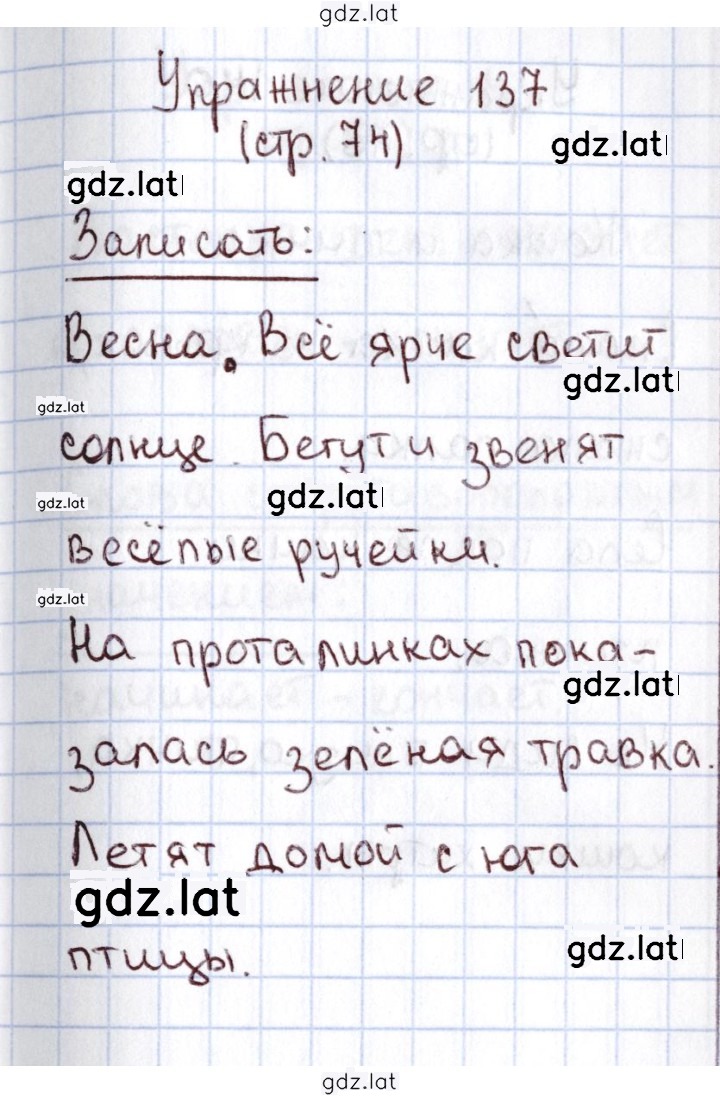 gdz.lat
Упражнение 137
(стр. 74)
gdz.lat
gdz.lat
Записать:
Весна. Всё ярче светит
gdz.lat
gdz.lat
солнце. Бегут и звенят
gdz.lat
gdz.lat
весёлые ручейки.
gdz.lat
На проталинках пока-
gdz.lat
залась зелёная травка.
Летят домой с юга
gdz.lat
птицы.
gdz.lat
gdz.lat